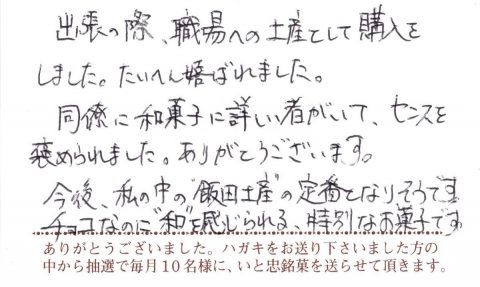 出張の際、職場への土産として購入を
しました。たいへん嬉ばれました。
同僚に和菓子に詳しい者がいて、センスを
褒められました。ありがとうございます。
今後、私の中の"飯田土産"の定番となりそうです
チョコなのに"和"を感じられる、特別なお菓子です
ありがとうございました。ハガキをお送り下さいました方の
中から抽選で毎月10名様に、いと忠銘菓を送らせて頂きます。